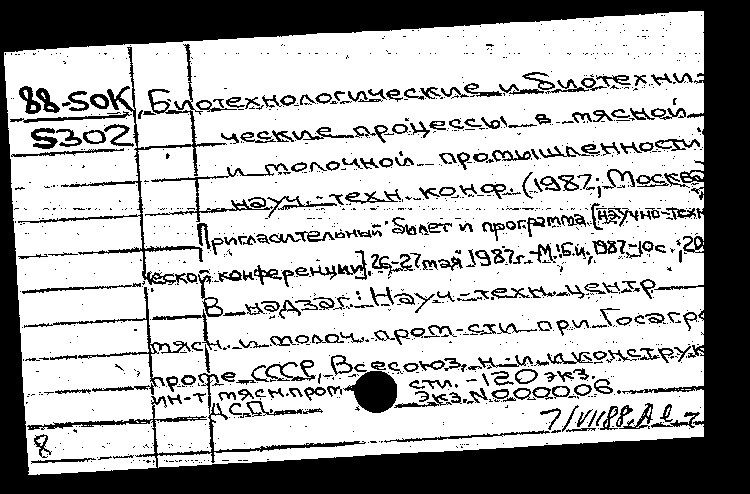 88-SOK Биотехнологические и биотехни-
S302 ческие процессы в мясной
и молочной промышленности"
науч.-техн. конф. (1987; Москва)
Пригласительный билет и программа [научно-техн
ческой конференции], 26-27 мая 1987г.-М.: Б.и., 1987-10с.; 20
В надзаг.: Науч.-техн. центр
мясн. и молоч. пром-сти при Госагро
проме СССР, Всесоюз. н.-и. и конструк
ин-т мясн. пром-сти. - 120 экз.
ЦСП. Экз. N 000006.
7/VII88.
8